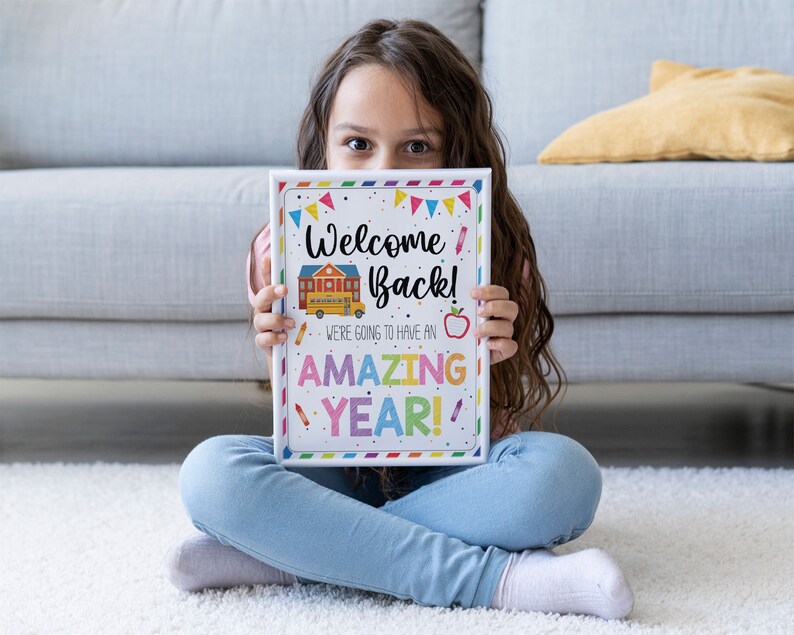 Welcome
Back!
WE'RE GOING TO HAVE AN
AMAZING
YEAR!